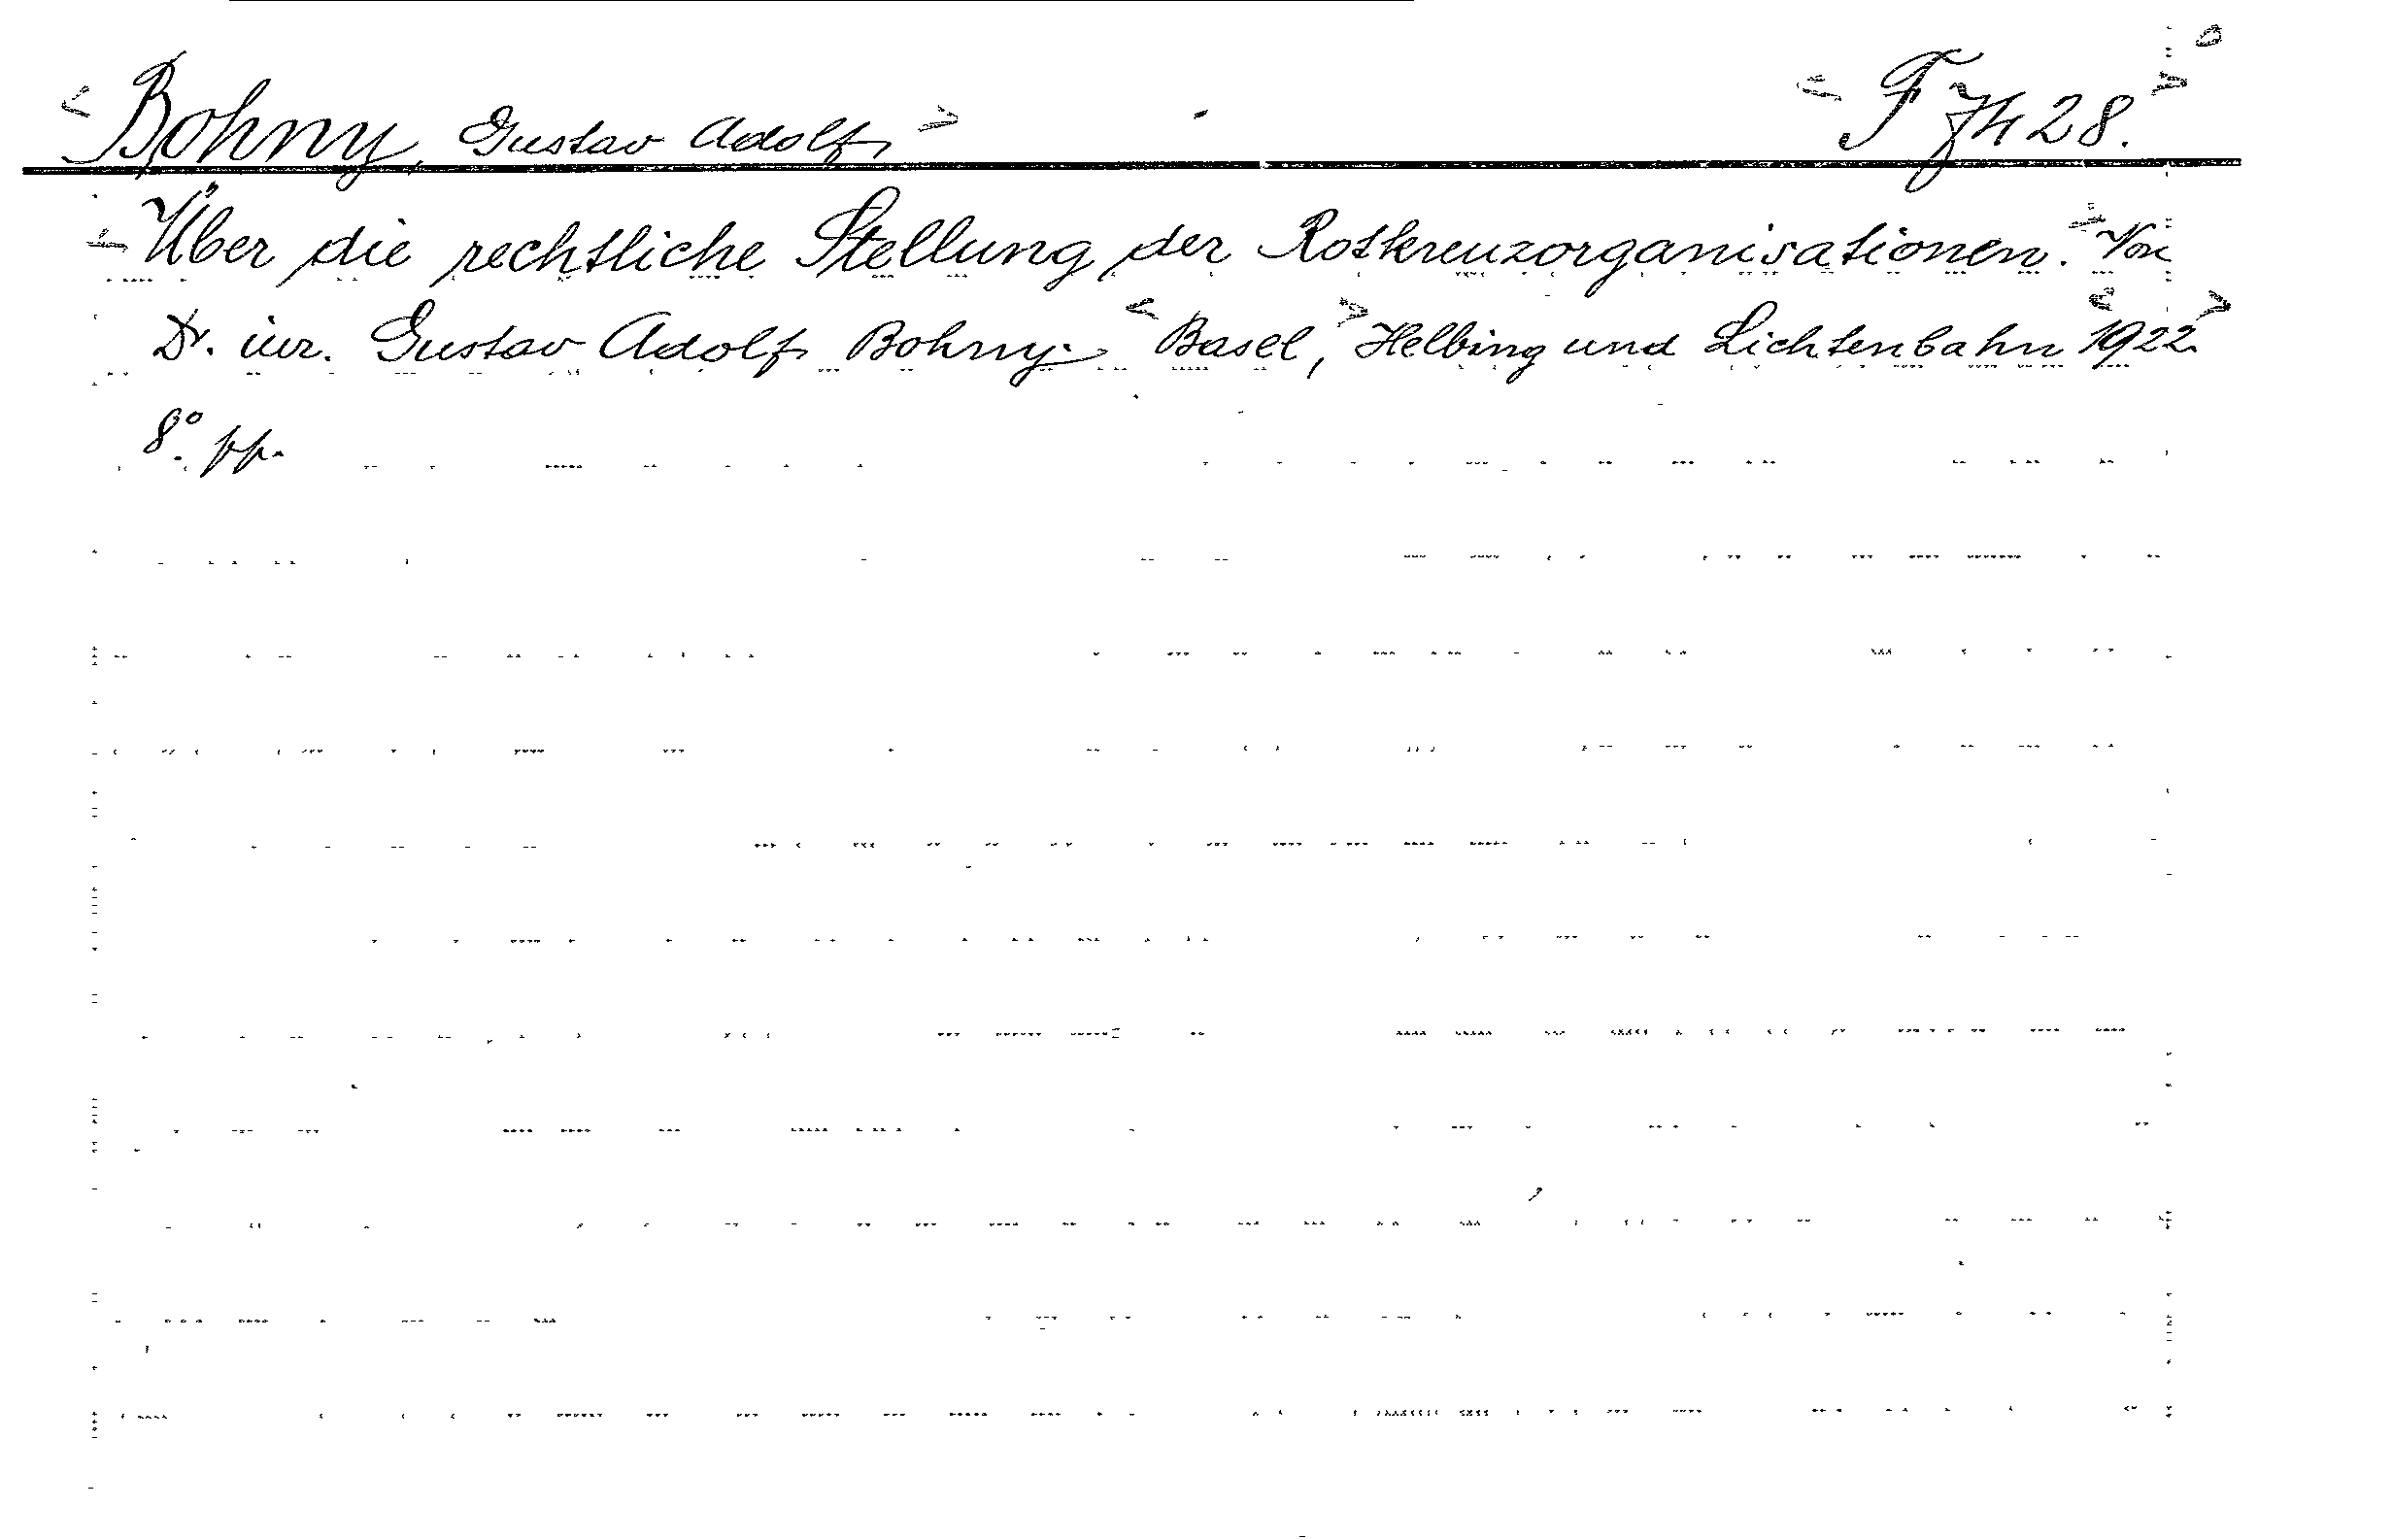 <Bohny, Gustav Adolf> <F 7428.>
Über die rechtliche Stellung der Rotkreuzorganisationen. Von
Dr. iur. Gustav Adolf Bohny. <Basel,> Helbing und Lichtenbahn <1922>
8°. pp.